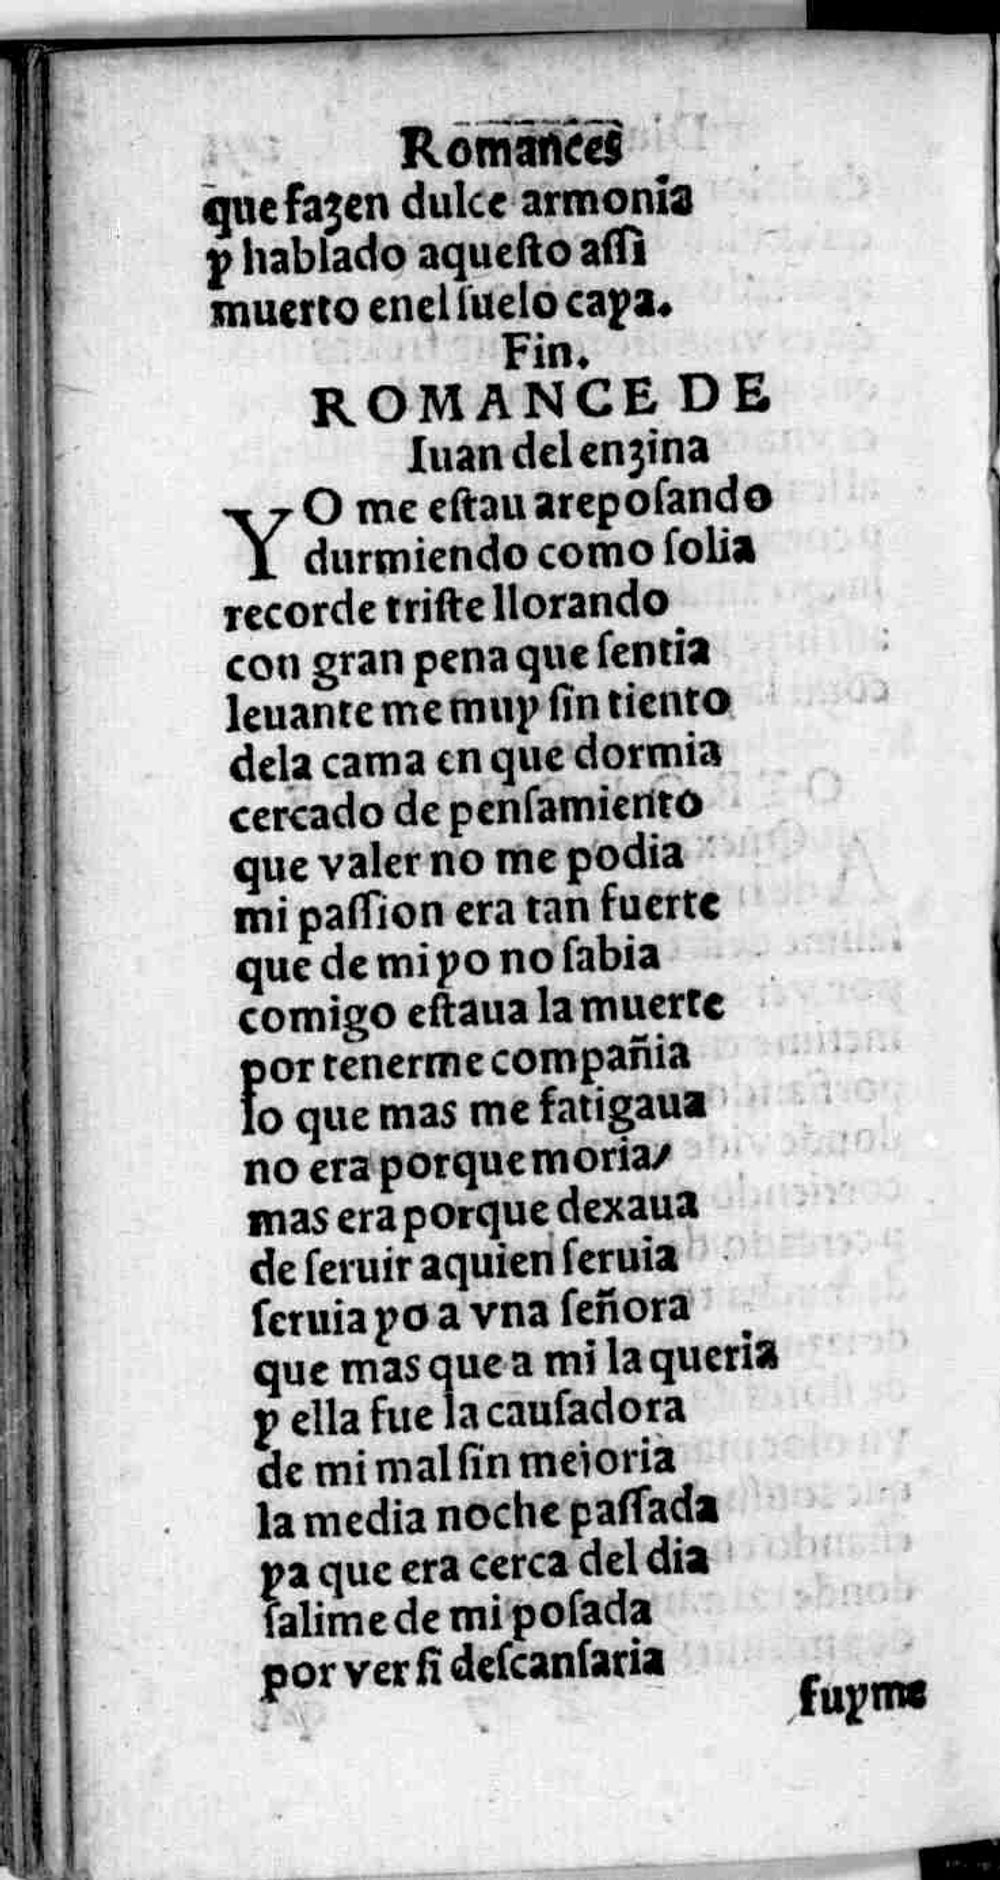 Romances
que fazen dulce armonia
y hablado aquesto assi
muerto enel suelo caya.
Fin.
ROMANCE DE
Iuan del enzina
YO me estau areposando
durmiendo como solia
recorde triste llorando
con gran pena que sentia
leuante me muy sin tiento
dela cama en que dormia
cercado de pensamiento
que valer no me podia
mi passion era tan fuerte
que de mi yo no sabia
comigo estaua la muerte
por tenerme compañia
lo que mas me fatigaua
no era porque moria/
mas era porque dexaua
de seruir aquien seruia
seruia yo a vna señora
que mas que a mi la queria
y ella fue la causadora
de mi mal sin meioria
la media noche passada
ya que era cerca del dia
salime de mi posada
por ver si descansaria
fuyme